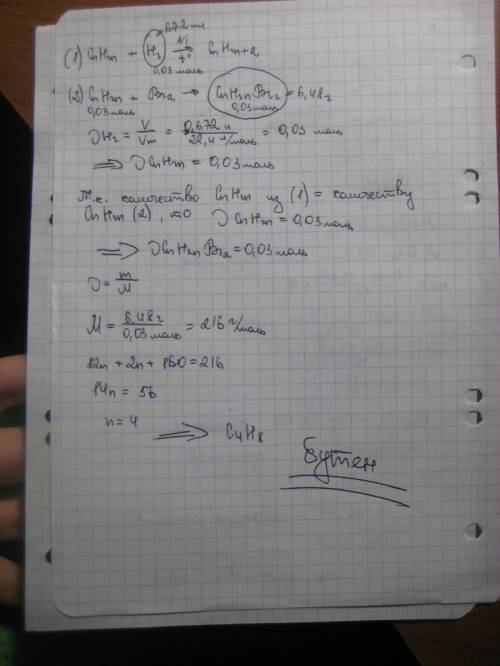 672 мл
(1) CnH2n + H2 Ni→t° CnH2n+2
0,03 моль
(2) CnH2n + Br2 → CnH2nBr2 = 6,48г
0,03моль 0,03моль
νH2 = V/Vm = 0,672 л/22,4 л/моль = 0,03 моль
⟹ νCnH2n = 0,03моль
т.к. количество CnH2n из (1) = количеству
CnH2n (2), то νCnH2n = 0,03моль
⟹ νCnH2nBr2 = 0,03моль
ν = m/M
M = 6,48г/0,03моль = 216 г/моль
12n + 2n + 160 = 216
14n = 56
n = 4
⟹ C4H8
Бутен